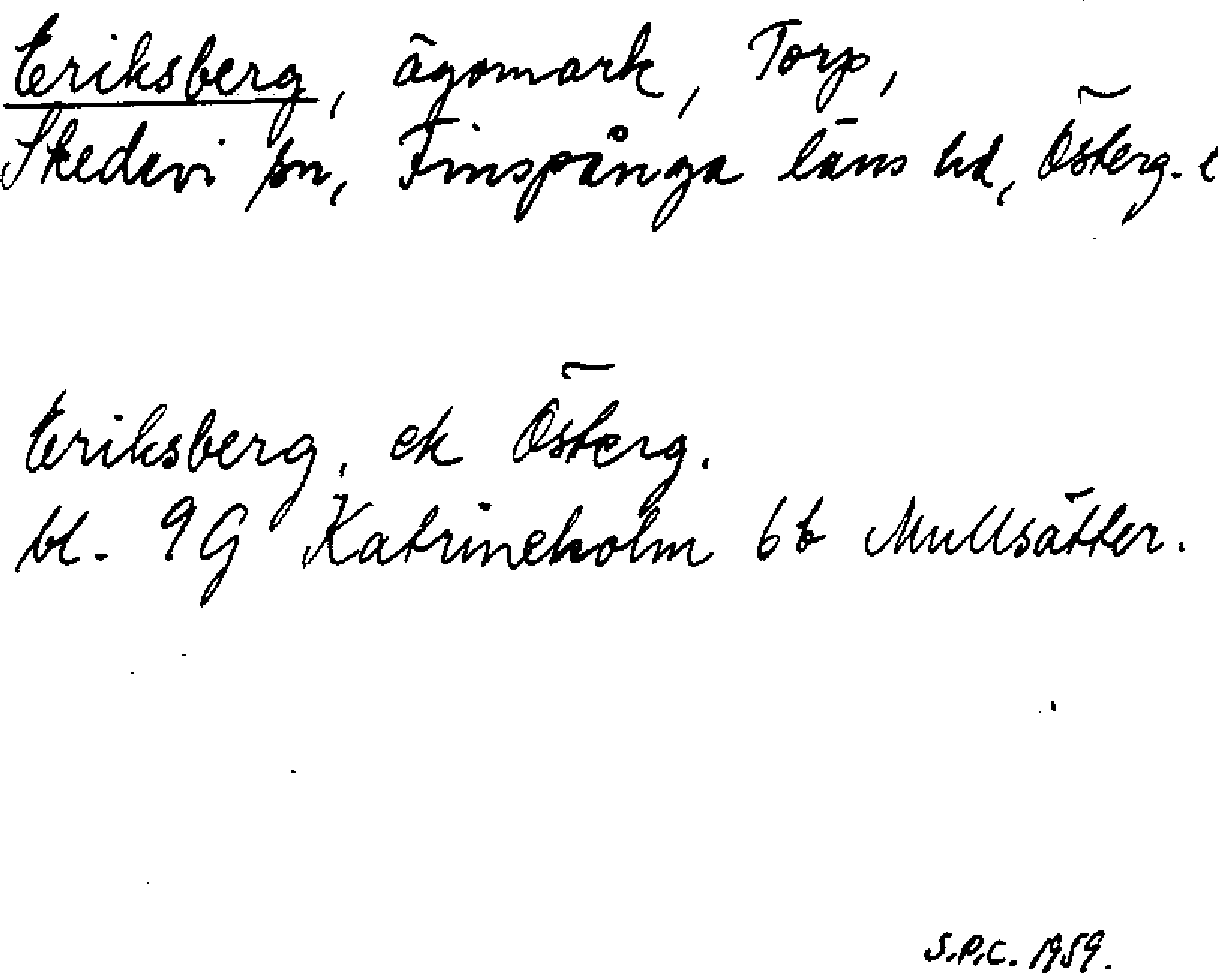 Eriksberg, ägomark, Torp,
Skedevi sn, Finspånga läns hd, Österg. l
Eriksberg, ek Österg.
bl. 9G Katrineholm 6b Mullsätter.
S.P.C. 1959.